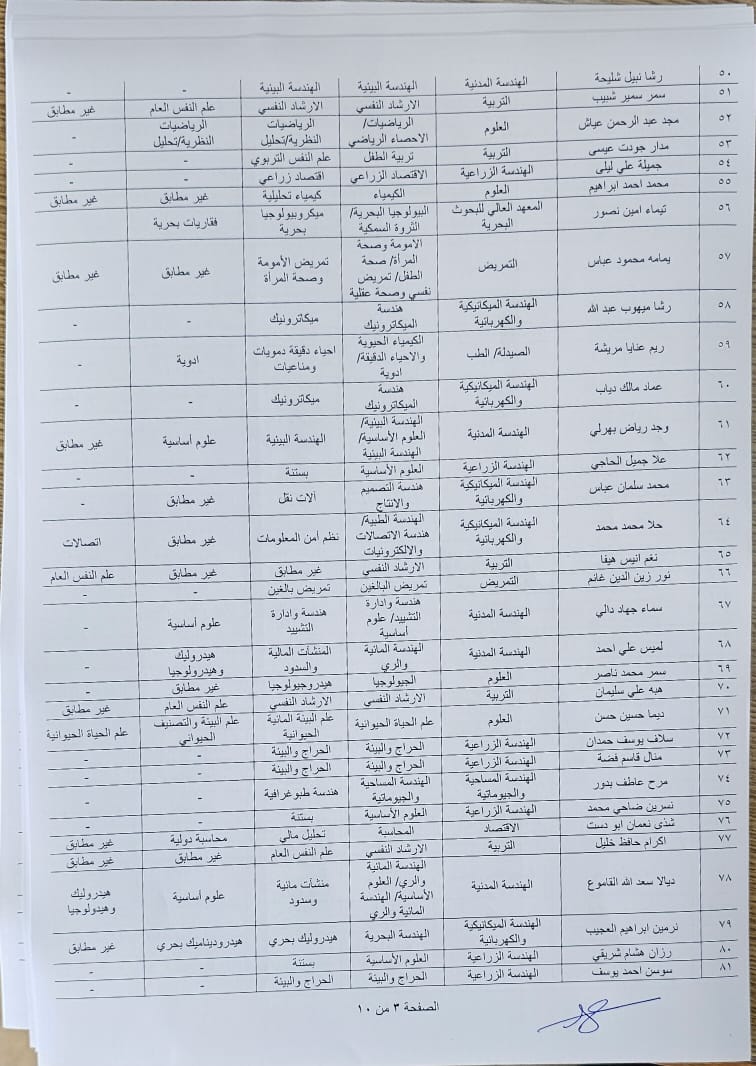 ٥٠ رشا نبيل شليحة الهندسة المدنية الهندسة البيئية الهندسة البيئية - -
٥١ سمر سمير شبيب التربية الارشاد النفسي الارشاد النفسي علم النفس العام غير مطابق
٥٢ مجد عبد الرحمن عياش العلوم الرياضيات/ الاحصاء الرياضي الرياضيات النظرية/تحليل الرياضيات النظرية/تحليل -
٥٣ مدار جودت عيسى التربية تربية الطفل علم النفس التربوي - -
٥٤ جميلة علي ليلى الهندسة الزراعية الاقتصاد الزراعي اقتصاد زراعي - -
٥٥ محمد احمد ابراهيم العلوم الكيمياء كيمياء تحليلية غير مطابق غير مطابق
٥٦ تيماء امين نصور المعهد العالي للبحوث البحرية البيولوجيا البحرية/ الثروة السمكية ميكروبيولوجيا بحرية فقاريات بحرية
٥٧ يمامه محمود عباس التمريض الامومة وصحة المرأة/ صحة الطفل/ تمريض نفسي وصحة عقلية تمريض الأمومة وصحة المرأة غير مطابق غير مطابق
٥٨ رشا ميهوب عبد الله الهندسة الميكانيكية والكهربائية هندسة الميكاترونيك ميكاترونيك - -
٥٩ ريم عنايا مريشة الصيدلة/ الطب الكيمياء الحيوية والاحياء الدقيقة/ ادوية احياء دقيقة دمويات ومناعيات ادوية -
٦٠ عماد مالك دياب الهندسة الميكانيكية والكهربائية هندسة الميكاترونيك ميكاترونيك - -
٦١ وجد رياض بهرلي الهندسة المدنية الهندسة البيئية/ العلوم الأساسية/ الهندسة البيئية الهندسة البيئية علوم أساسية غير مطابق
٦٢ علا جميل الحاجي الهندسة الزراعية العلوم الأساسية بستنة - -
٦٣ محمد سلمان عباس الهندسة الميكانيكية والكهربائية هندسة التصميم والانتاج آلات نقل غير مطابق -
٦٤ حلا محمد محمد الهندسة الميكانيكية والكهربائية الهندسة الطبية/ هندسة الاتصالات والالكترونيات نظم امن المعلومات غير مطابق اتصالات
٦٥ نغم انيس هيفا التربية الارشاد النفسي غير مطابق غير مطابق علم النفس العام
٦٦ نور زين الدين غانم التمريض تمريض البالغين تمريض بالغين - -
٦٧ سماء جهاد دالي الهندسة المدنية هندسة وادارة التشييد/ علوم أساسية هندسة وادارة التشييد علوم أساسية -
٦٨ لميس علي احمد الهندسة المدنية الهندسة المائية والري المنشآت المالية والسدود هيدروليك وهيدرولوجيا -
٦٩ سمر محمد ناصر العلوم الجيولوجيا هيدروجيولوجيا غير مطابق -
٧٠ هبه علي سليمان التربية الارشاد النفسي الارشاد النفسي علم النفس العام غير مطابق
٧١ ديما حسين حسن العلوم علم الحياة الحيوانية علم البيئة المائية الحيوانية علم البيئة والتصنيف الحيواني علم الحياة الحيوانية
٧٢ سلاف يوسف حمدان الهندسة الزراعية الحراج والبيئة الحراج والبيئة - -
٧٣ منال قاسم فضة الهندسة الزراعية الحراج والبيئة الحراج والبيئة - -
٧٤ مرح عاطف بدور الهندسة المساحية والجيوماتية الهندسة المساحية والجيوماتية هندسة طبوغرافية - -
٧٥ نسرين ضاحي محمد الهندسة الزراعية العلوم الأساسية بستنة - -
٧٦ شذى نعمان ابو دست الاقتصاد المحاسبة تحليل مالي محاسبة دولية غير مطابق
٧٧ اكرام حافظ خليل التربية الارشاد النفسي علم النفس العام غير مطابق غير مطابق
٧٨ ديالا سعد الله القاموع الهندسة المدنية الهندسة المائية والري/ العلوم الأساسية/ الهندسة المائية والري منشآت مائية وسدود علوم أساسية هيدروليك وهيدولوجيا
٧٩ نرمين ابراهيم العجيب الهندسة الميكانيكية والكهربائية الهندسة البحرية هيدروليك بحري هيدروديناميك بحري غير مطابق
٨٠ رزان هشام شريقي الهندسة الزراعية العلوم الأساسية بستنة - -
٨١ سوسن احمد يوسف الهندسة الزراعية الحراج والبيئة الحراج والبيئة - -
الصفحة ٣ من ١٠